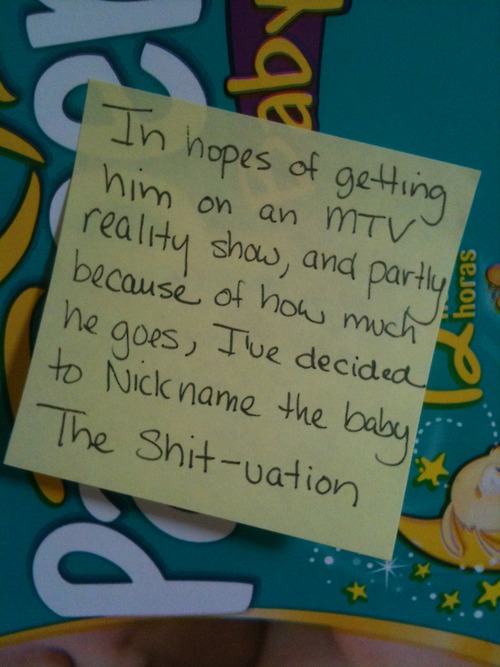 In hopes of getting
him on an MTV
reality show, and partly
because of how much
he goes, I've decided
to Nickname the baby
The Shit-uation
baby
12 horas